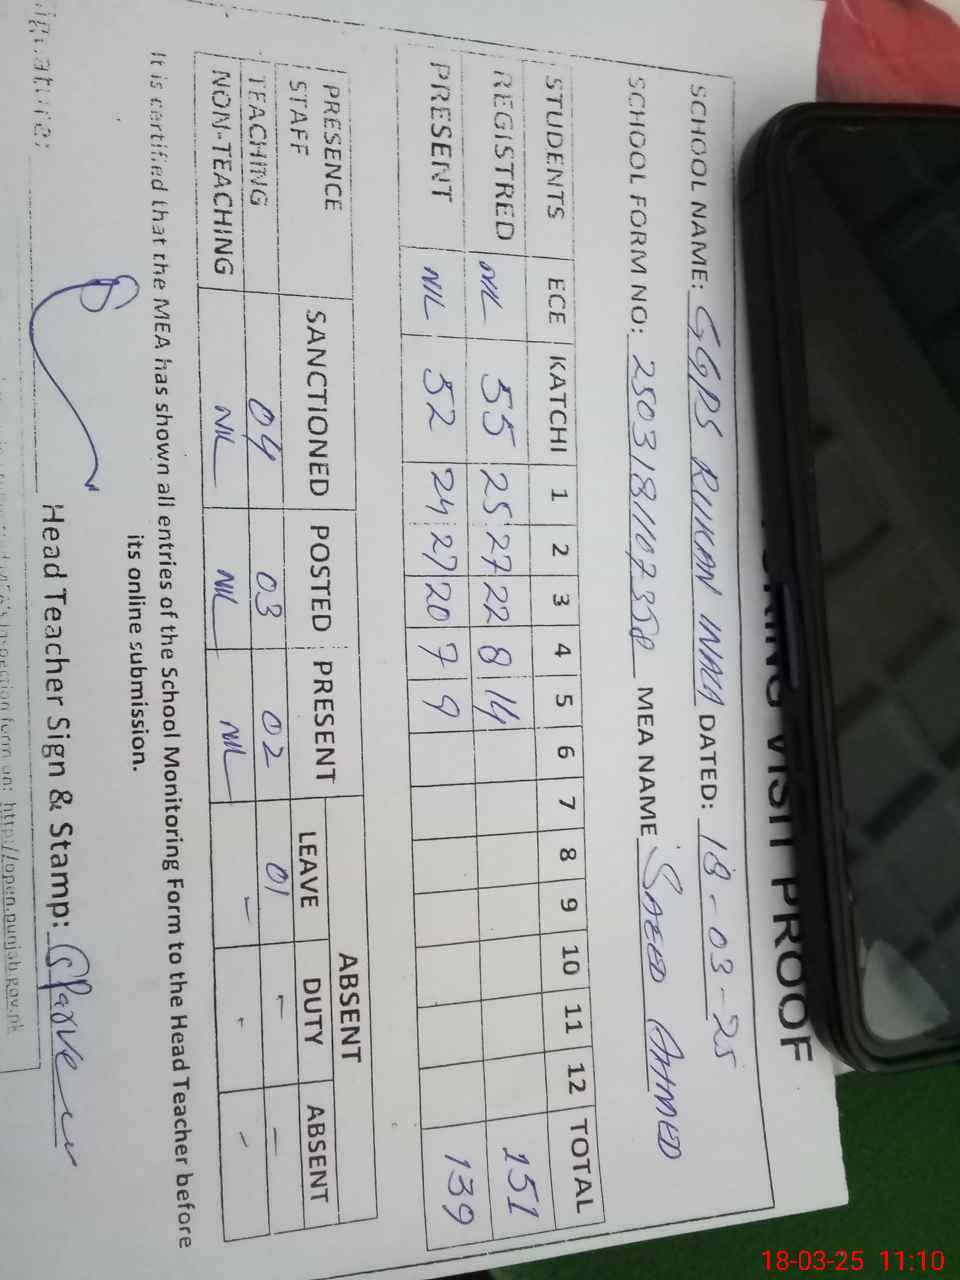 VISIT PROOF
SCHOOL NAME: GGPS RUKAN WALA DATED: 18-03-25
SCHOOL FORM NO: 2503181107358 MEA NAME SAEED AHMED
STUDENTS ECE KATCHI 1 2 3 4 5 6 7 8 9 10 11 12 TOTAL
REGISTRED NIL 55 25 27 22 8 14 151
PRESENT NIL 52 24 27 20 7 9 139
PRESENCE STAFF SANCTIONED POSTED PRESENT ABSENT
LEAVE DUTY ABSENT
TEACHING 04 03 02 01 - -
NON-TEACHING NIL NIL NIL - - -
It is certified that the MEA has shown all entries of the School Monitoring Form to the Head Teacher before
its online submission.
Signature: Head Teacher Sign & Stamp:
form on: http://open.punjab.gov.pk
18-03-25 11:10